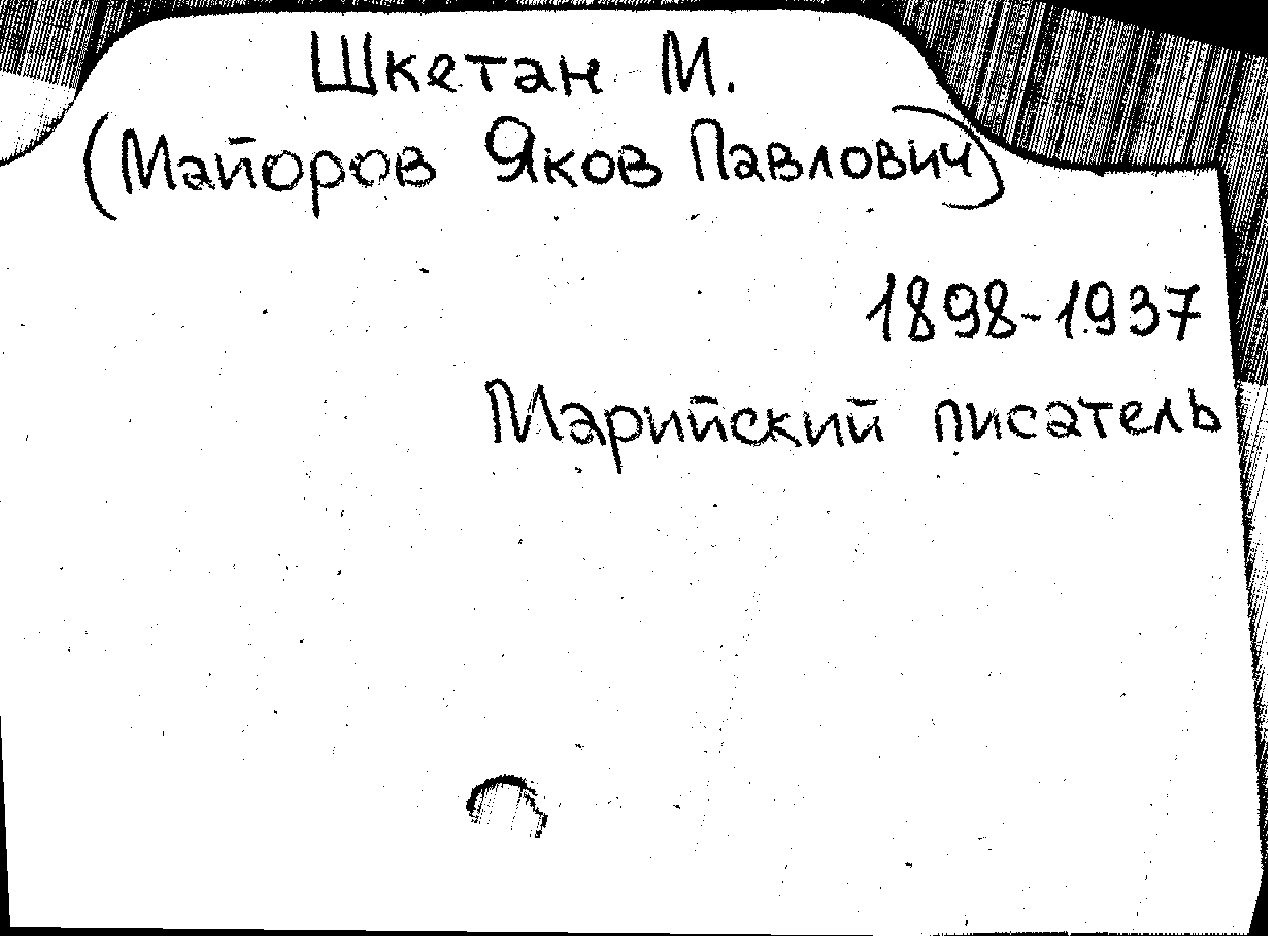 Шкетан М.
(Майоров Яков Павлович)
1898-1937
Марийский писатель